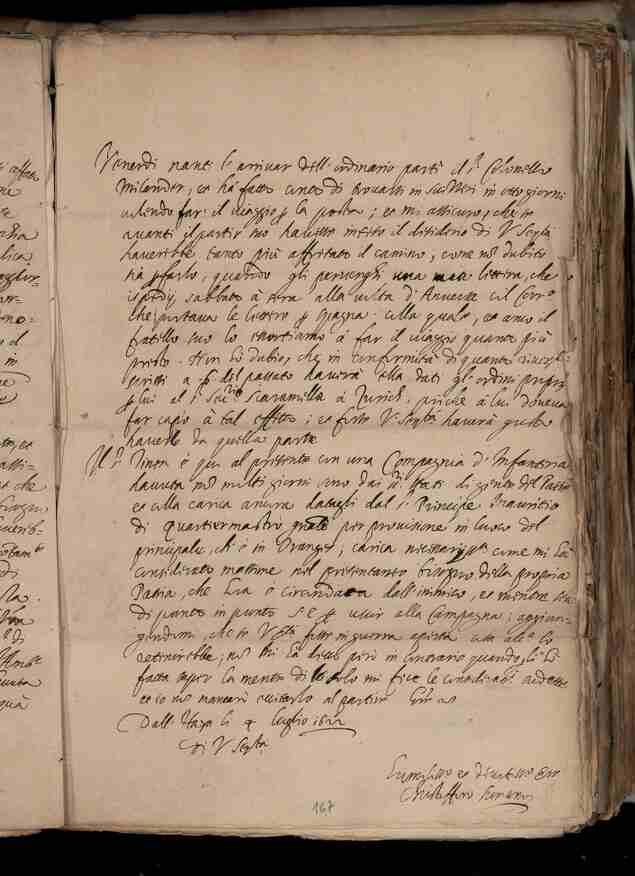 Venerdi nanti l'arrivar dell'ordinario partì il S.r Colonello
Milander, et ha fatto conto di trovarsi in in otto giorni
volendo far il viaggio p la posta; et mi assicuro, che se
avanti il partir suo havesse inteso il desiderio di V. Ser.tà
haverebbe tanto più affrettato il camino, come non dubito
sia p farlo, quando gli pervenghi una mia lettera, che
ispedij sabbato à sera alla volta d'Anversa col Corr.o
che portava le lettere p Spagna. colla quale, et anco il
fratello suo lo essortiamo à far il viaggio quanto più
presto. Non hò dubio, che in conformità di quanto
scrissi a del passato haverà ella dati gl'ordini proprij
p lui al S.r Sec.rio Scaramella à Zurich, perche à lui doveva
far capo à tal effetto; et forse V. Ser.tà haverà gusto
haverlo da quella parte.
Il S.r è qui al presente con una Compagnia d'Infanteria
levata non molti giorni sono dai SS.ri Stati di gente del Paese
et colla carica ancora datagli dal S.r Principe Mauritio
di Quartiermastro per provisione in luoco del
principale, ch'è in Oranges, carica come mi hà
considerato massime nel presentaneo bisogno della propria
Patria, che hora è circondata dall'inimico, et mentre stà
di punto in punto S. E. p uscir alla Campagna; aggion-
gendomi, che se V. Ser.tà fosse in guerra aperta
retinirebbe; non mi hà detto però in contrario quando
fatta saper la mente di lei solo mi fece le considerat.ni
et io non mancarò eccitarlo al partir. Gratie etc.
Dall'Haya li 4 luglio 1622
Di V. Ser.tà
Humiliss.o et Devotiss.o Ser.re
Christofforo Suriano
167